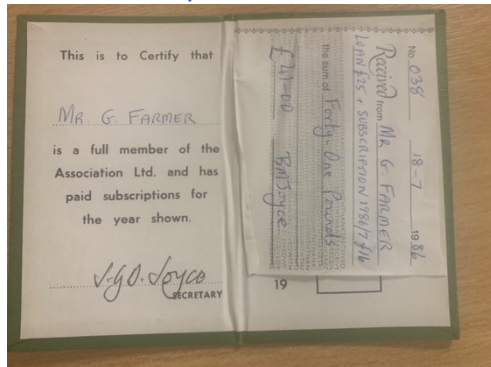 This is to Certify that
MR. G. FARMER
is a full member of the
Association Ltd. and has
paid subscriptions for
the year shown.
J.G.D. Joyce
SECRETARY
No 038 18-7 1986
Received from MR G. FARMER
LOAN £25 + SUBSCRIPTION 1986/7 £16
the sum of Forty-One Pounds
£41-00 BMJoyce
19